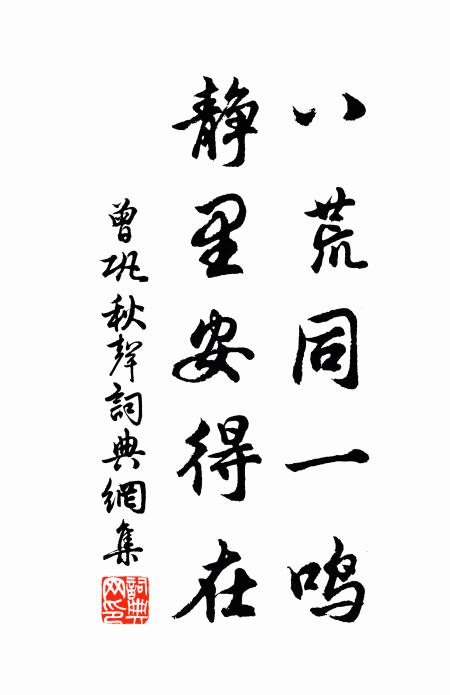 八荒同一鸣
静里安得在
曾巩秋聲詞典網集
詞典網印